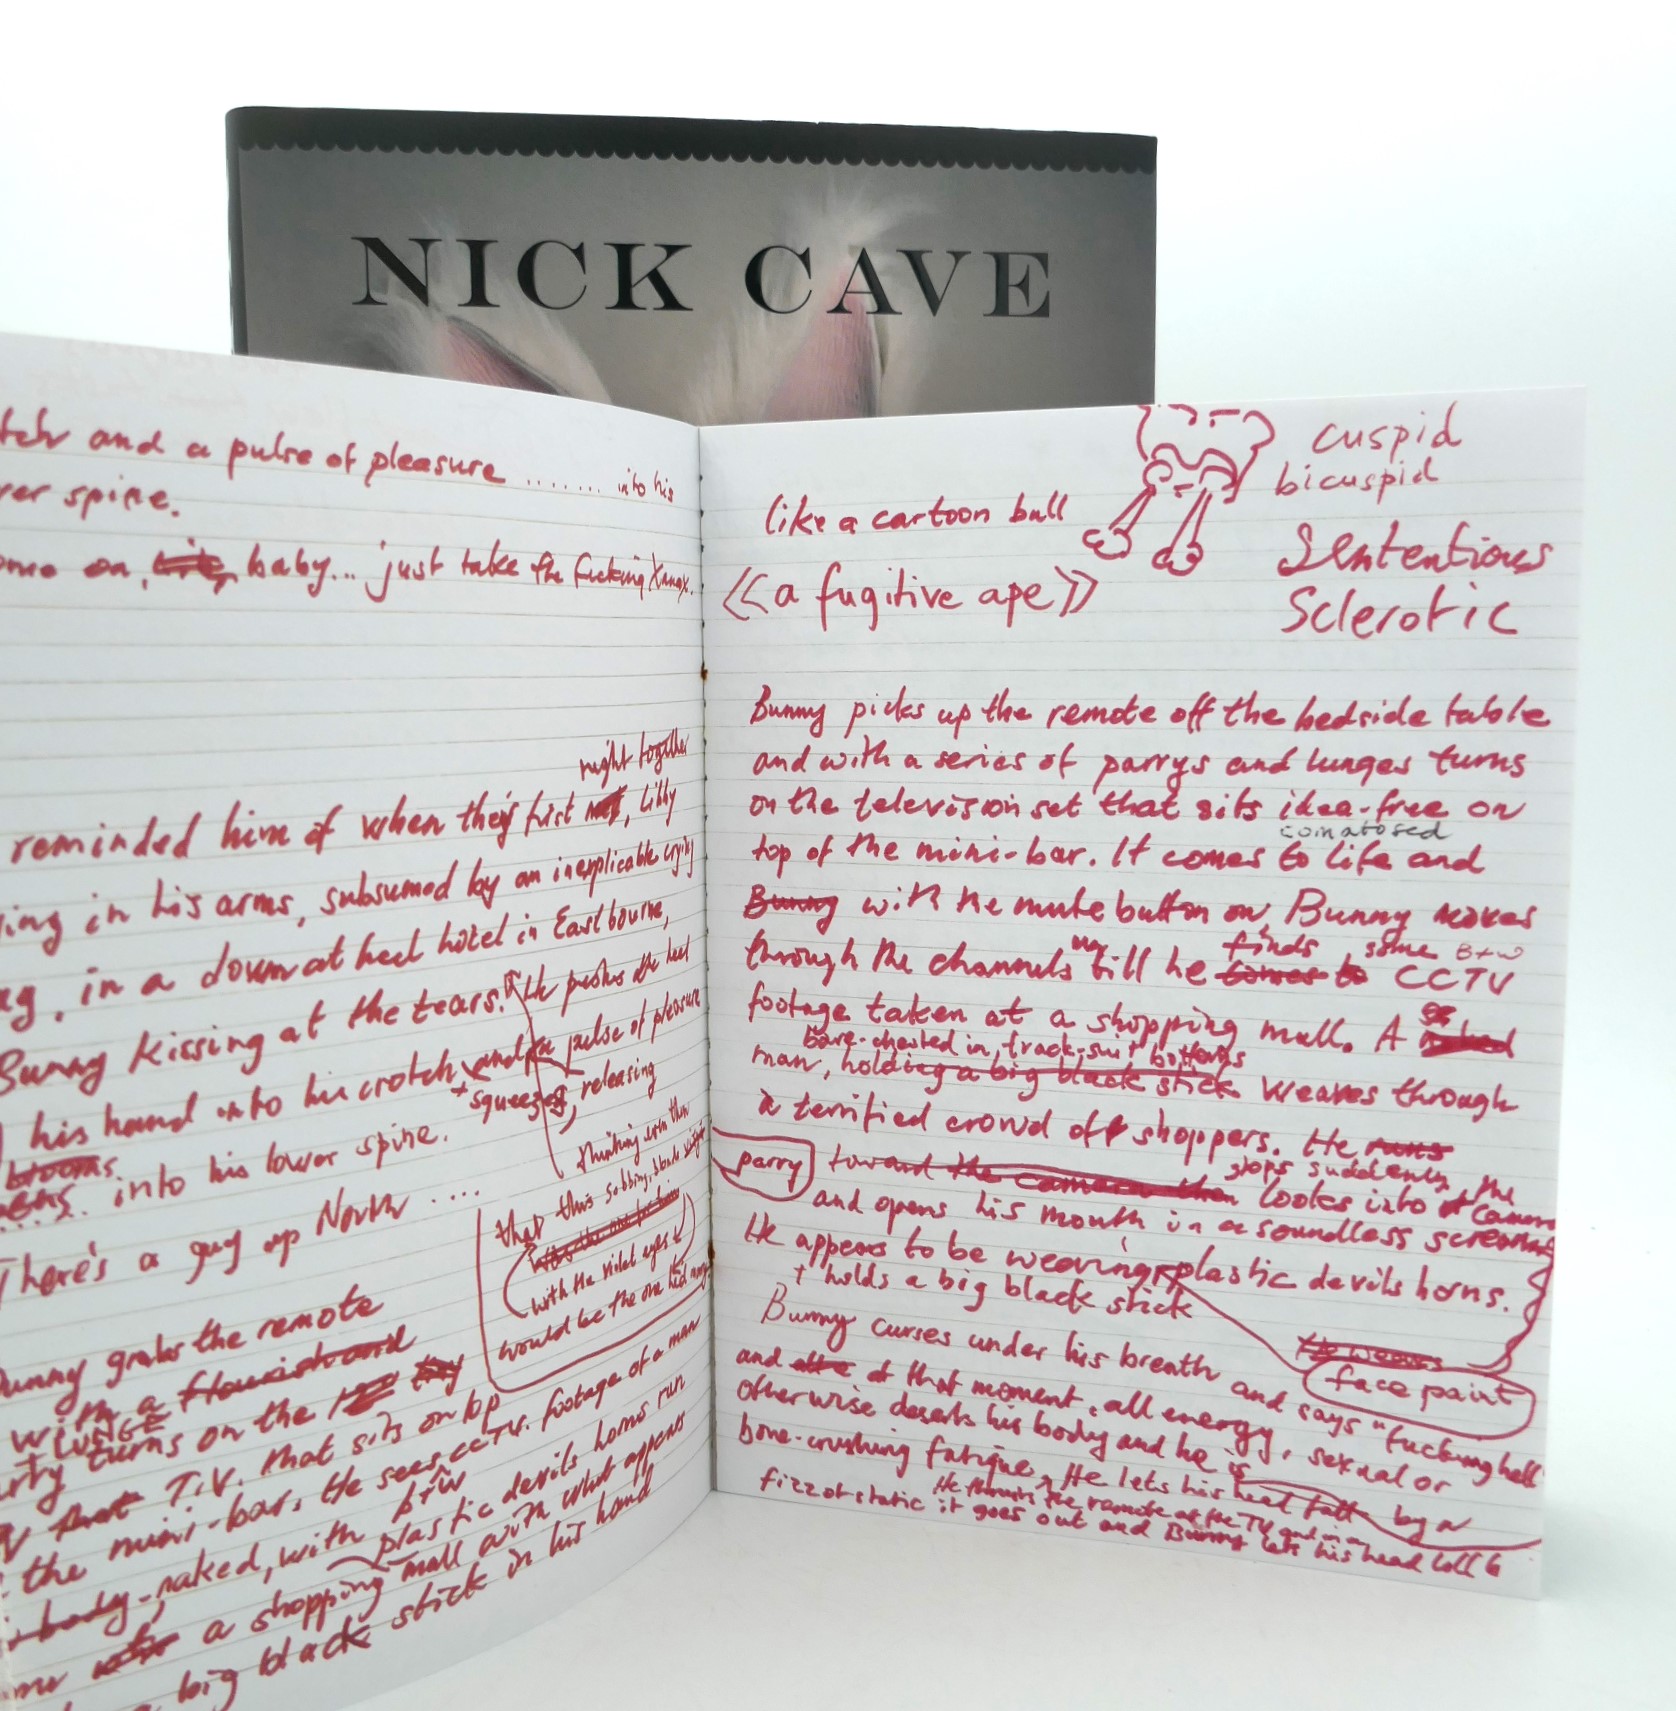 NICK CAVE
and a pulse of pleasure ........ into his
spine.
on, baby... just take the fucking Xanax.
night together
reminded him of when they'd first met, Libby
in his arms, subsumed by an inexplicable crying
in a down at heel hotel in Eastbourne,
Bunny kissing at the tears. He pushes the heel
his hand into his crotch and a pulse of pleasure
+ squeezes, releasing
blooms into his lower spine.
There's a guy up North ....
thinking even then
that this sobbing, blonde
with the violet eyes
would be the one
Bunny grabs the remote
with a flourish and
+ LUNGE
turns on the
that T.V. that sits on top
the mini-bar. He sees CCTV. footage of a man
b+w
body naked, with plastic devils horns run
a shopping mall with what appears
a big black stick in his hand
cuspid
bicuspid
like a cartoon bull
<<a fugitive ape>>
Sententious
Sclerotic
Bunny picks up the remote off the bedside table
and with a series of parrys and lunges turns
on the television set that sits idea-free on
comatosed
top of the mini-bar. It comes to life and
Bunny with the mute button on, Bunny moves
finds some B+W
through the channels till he comes to CCTV
footage taken at a shopping mall. A
bare-chested in, track-suit bottoms
man, holding a big black stick weaves through
a terrified crowd of shoppers. He runs
stops suddenly, the
parry toward the camera then looks into camera
and opens his mouth in a soundless scream
He appears to be wearing plastic devils horns.
+ holds a big black stick
He wears
face paint
Bunny curses under his breath and says "fucking hell
and at that moment, all energy, sexual or
otherwise deserts his body and he is
bone-crushing fatigue. He lets his head fall by a
He thrusts the remote at the TV and in a
fizz of static it goes out and Bunny lets his head loll